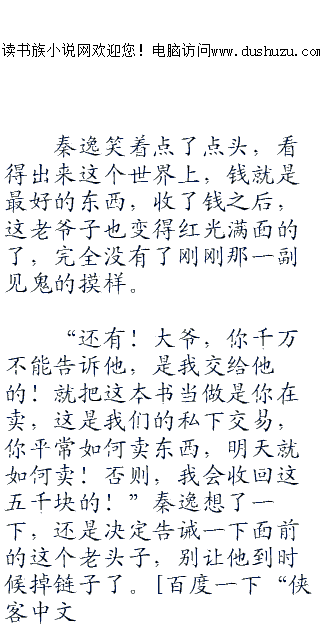 读书族小说网欢迎您！电脑访问www.dushuzu.com
秦逸笑着点了点头，看
得出来这个世界上，钱就是
最好的东西，收了钱之后，
这老爷子也变得红光满面的
了，完全没有了刚刚那一副
见鬼的摸样。
“还有！大爷，你千万
不能告诉他，是我交给他
的！就把这本书当做是你在
卖，这是我们的私下交易，
你平常如何卖东西，明天就
如何卖！否则，我会收回这
五千块的！”秦逸想了一
下，还是决定告诫一下面前
的这个老头子，别让他到时
候掉链子了。[百度一下“侠
客中文